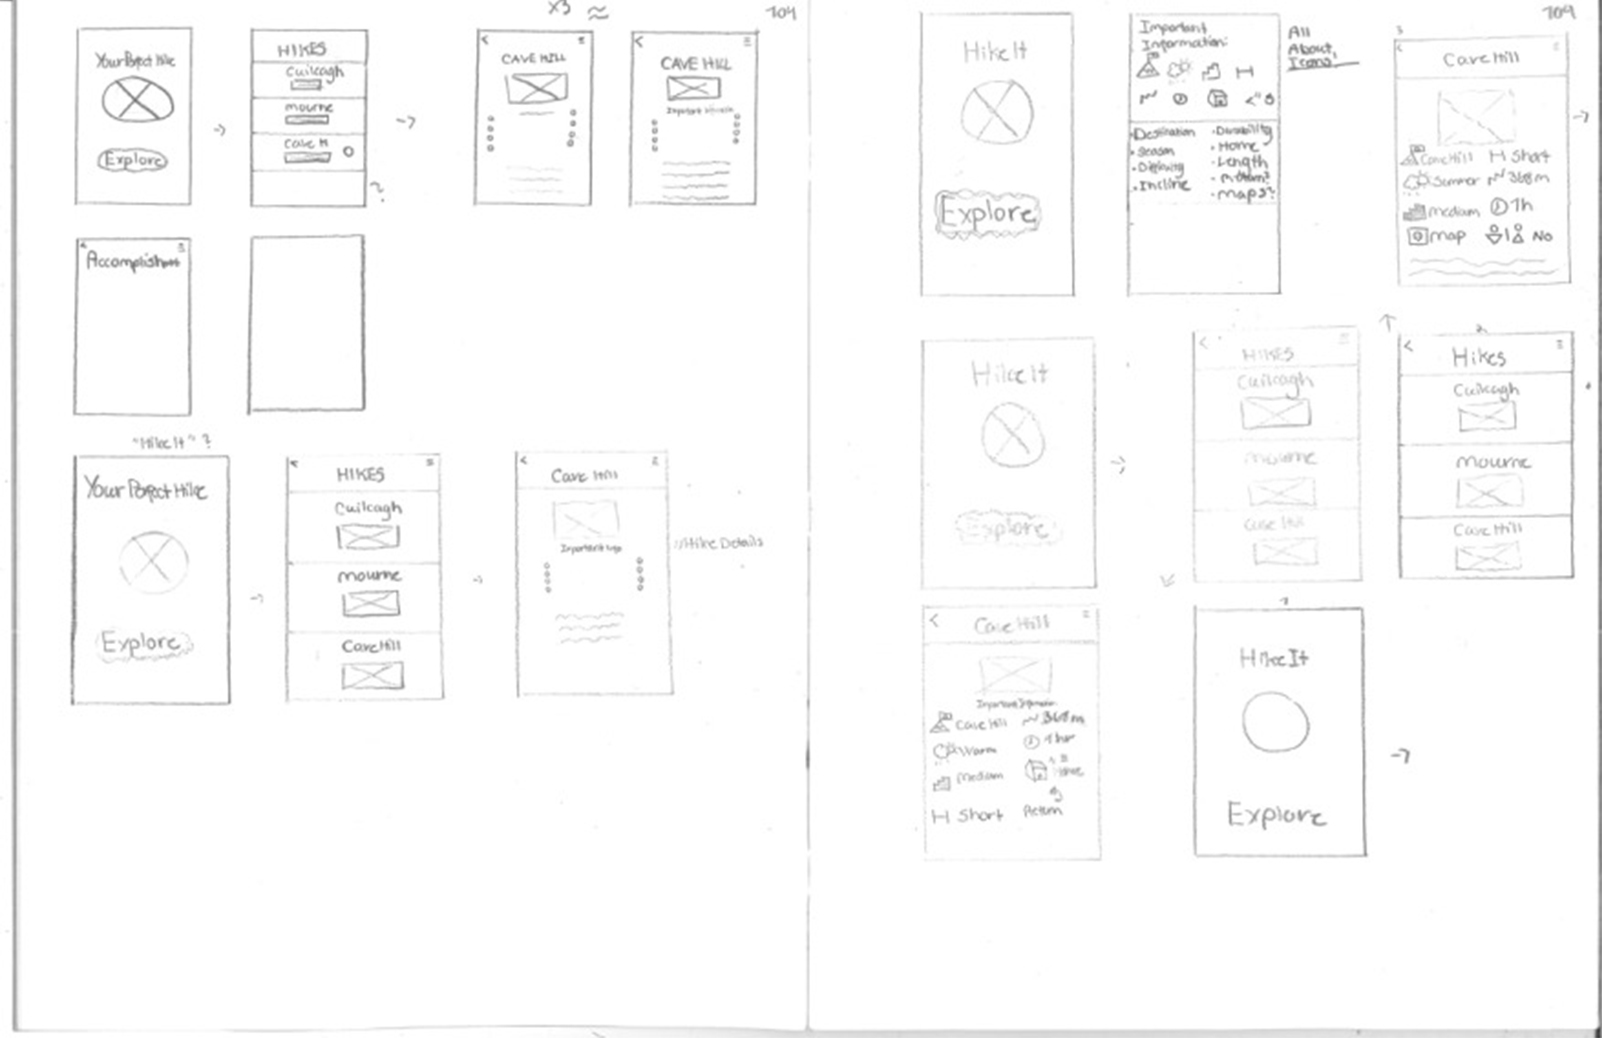 x3
704
Your Perfect Hike
Explore
HIKES
Cuilcagh
mourne
Cave H
?
CAVE HILL
CAVE HILL
Accomplishment
"Hike It" ?
Your Perfect Hike
Explore
HIKES
Cuilcagh
mourne
Cave Hill
Cave Hill
Important Info
//Hike Details
Hike It
Explore
Important
Information:
All
About,
Icons!
• Destination
• Season
• Difficulty
• Incline
• Durability
• Home
• Length
• maps?
3
Cave Hill
Cave Hill
Short
Summer
368m
medium
1h
map
No
Hike It
Explore
HIKES
Cuilcagh
mourne
Cave Hill
2
Hikes
Cuilcagh
mourne
Cave Hill
Cave Hill
Important Information
Cave Hill
368m
Warm
1hr
Medium
Short
Return
1
Hike It
Explore